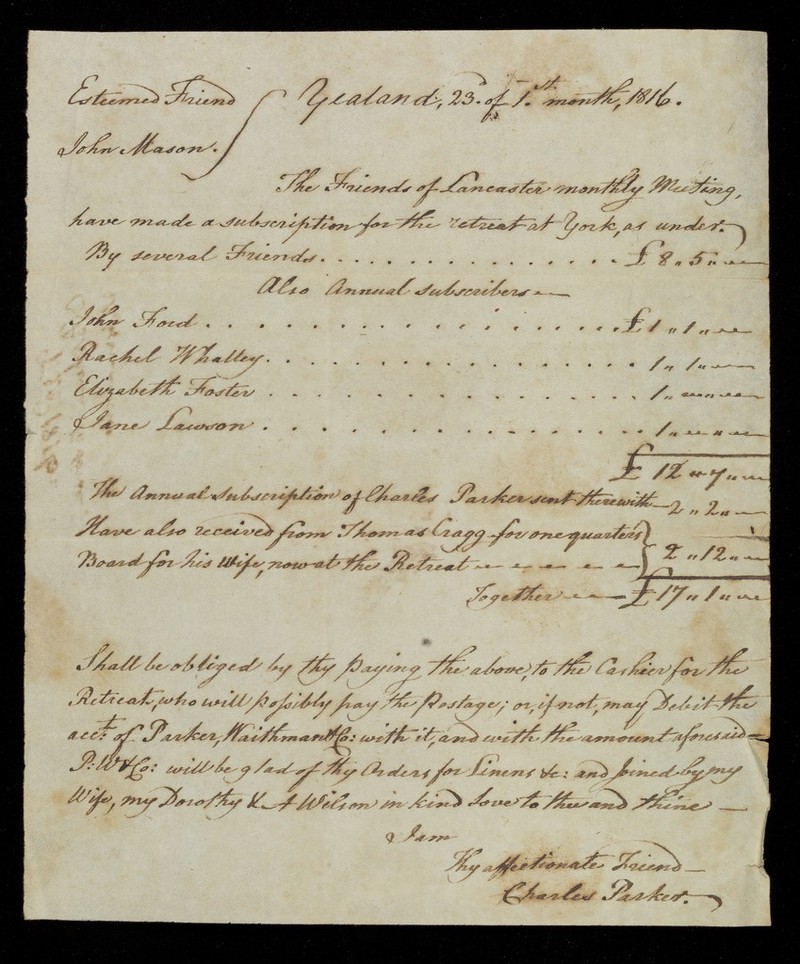 Esteemed Friend } Yealand, 23d. of 1st. month, 1816.
John Mason.
The Friends of Lancaster monthly Meeting,
have made a subscription for the retreat at York, as under.
By several Friends. . . . . . . . . . . . . . . £ 8 " 5 " —
Also Annual subscribers —
John Ford . . . . . . . . . . . . . . . £ 1 " 1 " —
Rachel Whalley. . . . . . . . . . . . . . . 1 " 1 " —
Elizabeth Foster . . . . . . . . . . . . . . . 1 " — " —
Jane Lawson . . . . . . . . . . . . . . . 1 " — " —
£ 12 " 7 " —
The Annual subscription of Charles Parker sent therewith — 2 " 2 " —
Have also received from Thomas Cragg for one quarters }
Board for his Wife, now at the Retreat — — — — } 2 " 12 " —
Together — — £ 17 " 1 " —
Shall be obliged by thy paying the above, to the Cashier for the
Retreat, who will possibly pay the Postage; or, if not, may Debit the
acct. of Parker, Waithman & Co: with it, and with the amount aforesaid —
P: W & Co: will be glad of thy Orders for Linens &c: and joined by my
Wife, my Dorothy & A Wilson in kind love to thee and thine —
I am
Thy affectionate Friend —
Charles Parker.